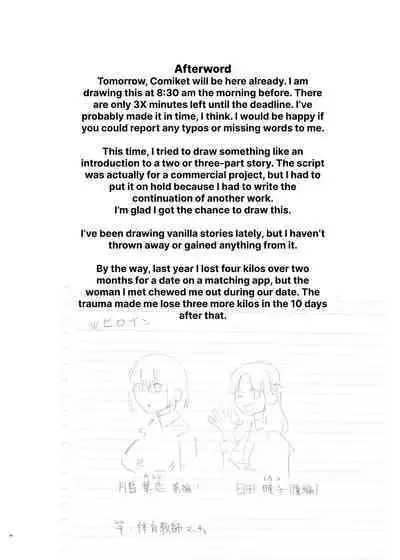 Afterword
Tomorrow, Comiket will be here already. I am
drawing this at 8:30 am the morning before. There
are only 3X minutes left until the deadline. I've
probably made it in time, I think. I would be happy if
you could report any typos or missing words to me.
This time, I tried to draw something like an
introduction to a two or three-part story. The script
was actually for a commercial project, but I had to
put it on hold because I had to write the
continuation of another work.
I'm glad I got the chance to draw this.
I've been drawing vanilla stories lately, but I haven't
thrown away or gained anything from it.
By the way, last year I lost four kilos over two
months for a date on a matching app, but the
woman I met chewed me out during our date. The
trauma made me lose three more kilos in the 10 days
after that.
Wヒロイン
竿 体育教師